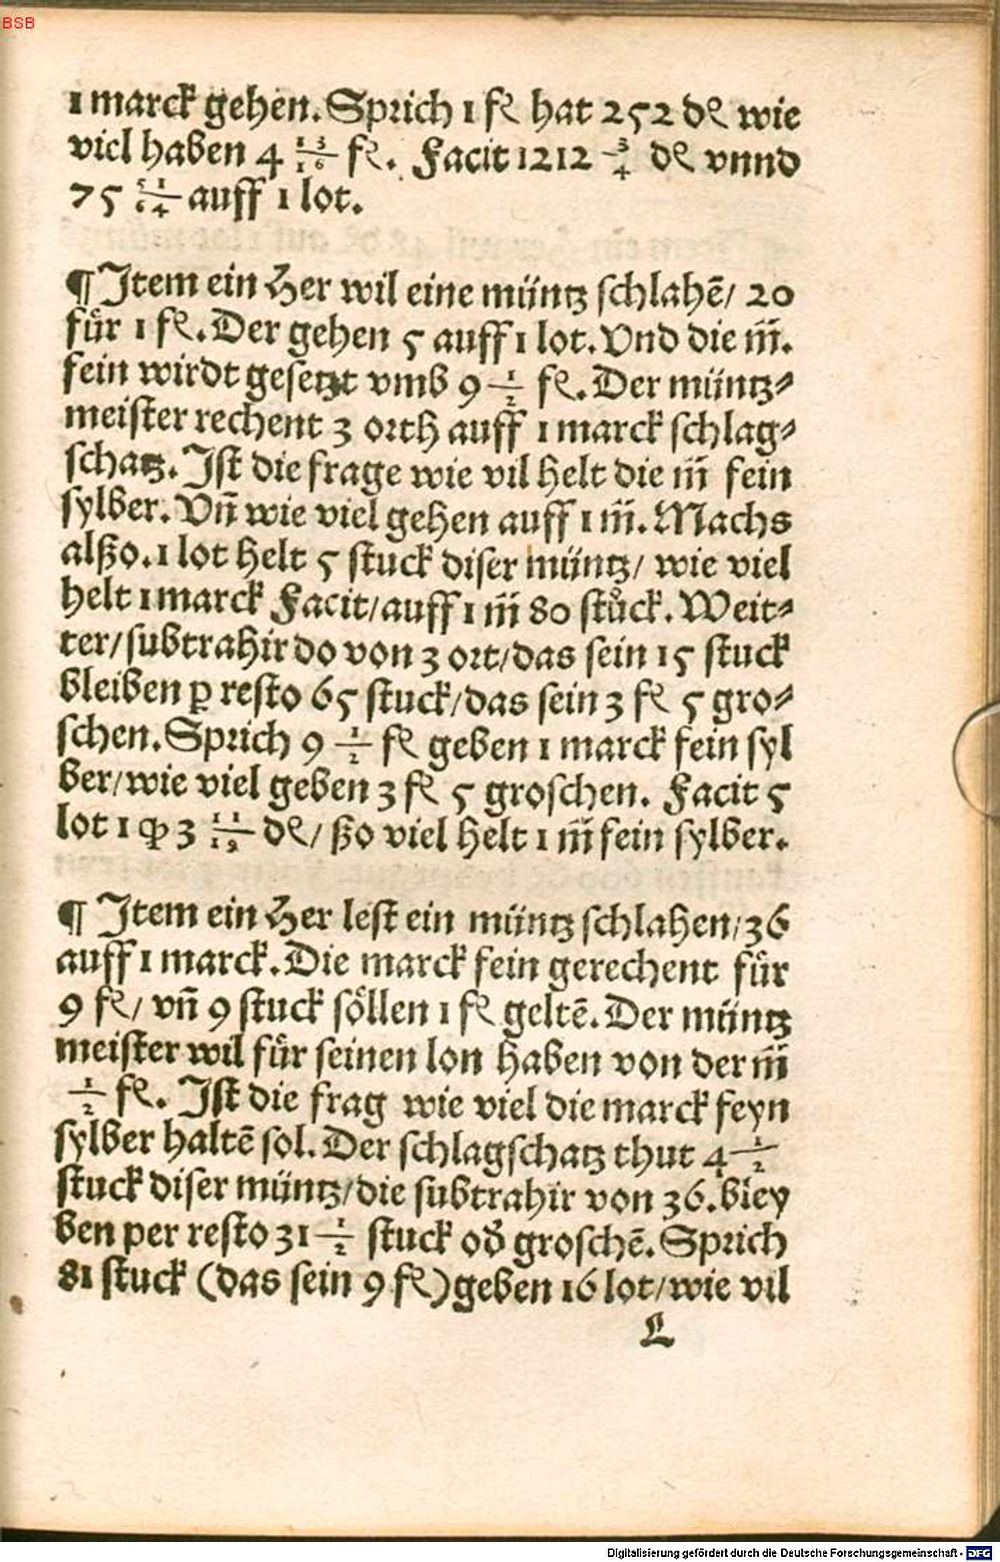 BSB
1 marck gehen. Sprich 1 fl hat 252 dl wie
viel haben 4 13/16 fl. Facit 1212 3/4 dl vnnd
75 51/64 auff 1 lot.
¶ Item ein Her wil eine müntz schlahẽ/ 20
fuͤr 1 fl. Der gehen 5 auff 1 lot. Vnd die m̃.
fein wirdt gesetzt vmb 9 1/2 fl. Der müntz⸗
meister rechent 3 orth auff 1 marck schlag⸗
schatz. Ist die frage wie vil helt die m̃ fein
sylber. Vñ wie viel gehen auff 1 m̃. Machs
alßo. 1 lot helt 5 stuck diser müntz/ wie viel
helt 1 marck Facit/ auff 1 m̃ 80 stuͤck. Weit⸗
ter/ subtrahir do von 3 ort/ das sein 15 stuck
bleiben ꝑ resto 65 stuck/ das sein 3 fl 5 gro⸗
schen. Sprich 9 1/2 fl geben 1 marck fein syl
ber/ wie viel geben 3 fl 5 groschen. Facit 5
lot 1 qͥ 3 11/19 dl/ ßo viel helt 1 m̃ fein sylber.
¶ Item ein Her lest ein müntz schlahen/ 36
auff 1 marck. Die marck fein gerechent fuͤr
9 fl/ vñ 9 stuck soͤllen 1 fl geltẽ. Der müntz
meister wil fuͤr seinen lon haben von der m̃
1/2 fl. Ist die frag wie viel die marck feyn
sylber haltẽ sol. Der schlagschatz thut 4 1/2
stuck diser müntz/ die subtrahir von 36. bley
ben per resto 31 1/2 stuck od̕ groschẽ. Sprich
81 stuck (das sein 9 fl) geben 16 lot/ wie vil
L
Digitalisierung gefördert durch die Deutsche Forschungsgemeinschaft - DFG